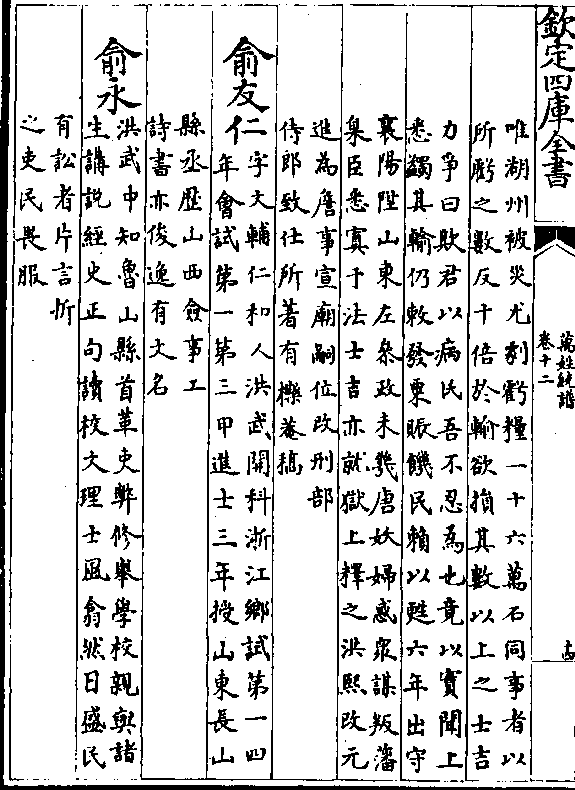 欽定四庫全書
萬姓統譜
卷十二
唯湖州被災尤劇虧糧一十六萬石同事者以
所虧之數反十倍於輸欲損其數以上之士吉
力爭曰欺君以病民吾不忍為也竟以實聞上
悉蠲其輸仍敕發粟賑饑民賴以甦六年出守
襄陽陞山東左叅政未幾唐妖婦惑衆謀叛藩
臬臣悉寘于法士吉亦就獄上釋之洪熙改元
進為詹事宣廟嗣位改刑部
侍郎致仕所著有櫟菴稿
俞友仁
字文輔仁和人洪武開科浙江鄉試第一四
年會試第一第三甲進士三年授山東長山
縣丞歷山西僉事工
詩書亦俊逸有文名
俞永
洪武中知魯山縣首革吏弊修舉學校親與諸
生講說經史正句讀校文理士風翕然日盛民
有訟者片言折
之吏民畏服